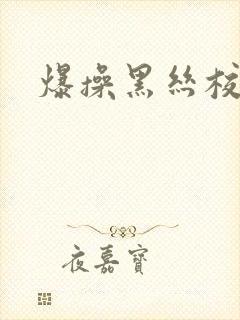 爆操黑丝校
夜嘉寶